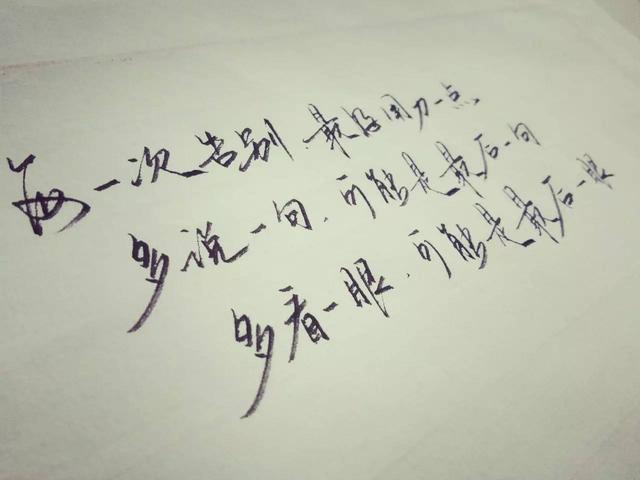 每一次告别，最好用力一点
多说一句，可能是最后一句
多看一眼，可能是最后一眼